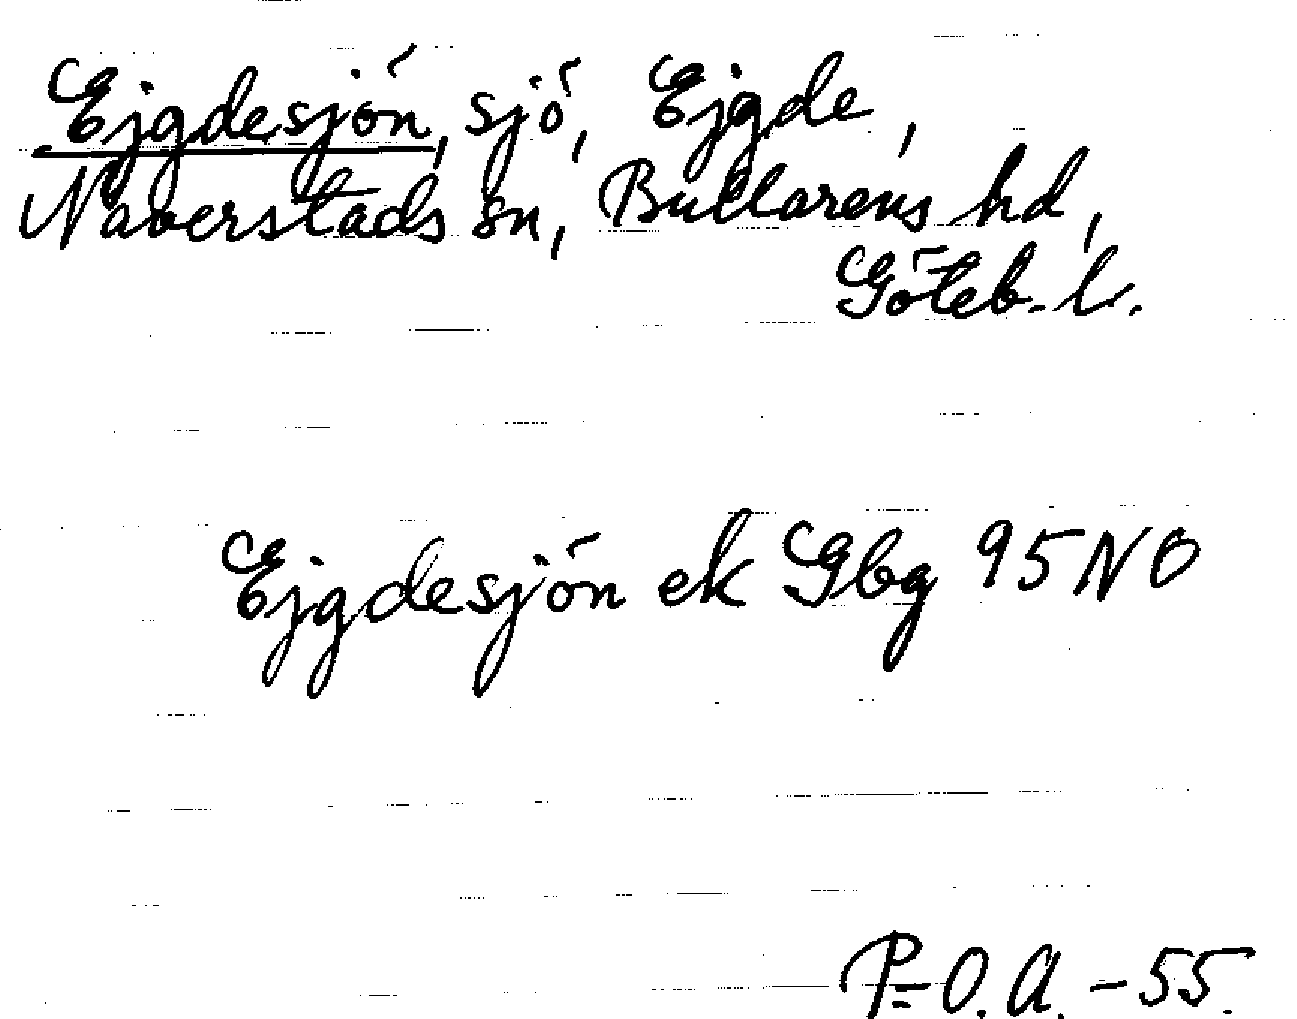 Ejgdesjön, sjö, Ejgde,
Naverstads sn, Bullarens hd,
Göteb. l.
Ejgdesjön ek Gbg 95 NO
P=O. A. -55.